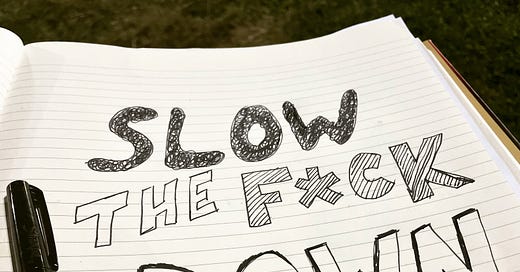 SLOW
THE F*CK
DOWN